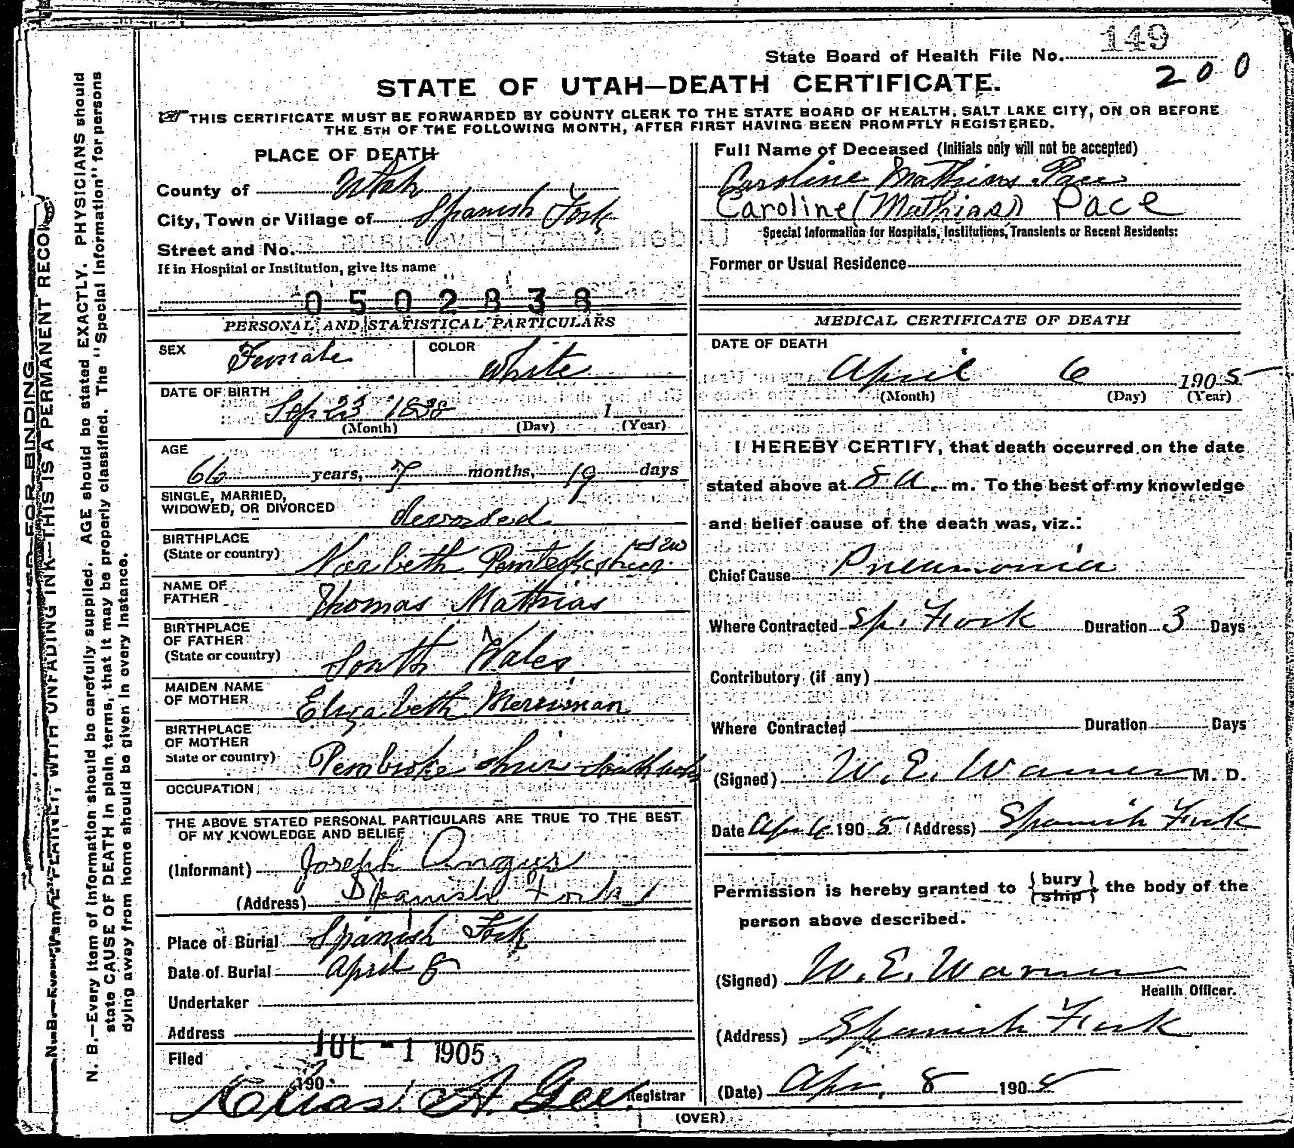 State Board of Health File No. 149
200
STATE OF UTAH—DEATH CERTIFICATE.
THIS CERTIFICATE MUST BE FORWARDED BY COUNTY CLERK TO THE STATE BOARD OF HEALTH, SALT LAKE CITY, ON OR BEFORE
THE 5TH OF THE FOLLOWING MONTH, AFTER FIRST HAVING BEEN PROMPTLY REGISTERED.
PLACE OF DEATH
County of Utah
City, Town or Village of Spanish Fork
Street and No.
If in Hospital or Institution, give its name
0502838
PERSONAL AND STATISTICAL PARTICULARS
SEX Female COLOR White
DATE OF BIRTH Sep 23 1838 1
(Month) (Day) (Year)
AGE
66 years, 7 months, 19 days
SINGLE, MARRIED,
WIDOWED, OR DIVORCED divorsed
BIRTHPLACE
(State or country) Narbeth
NAME OF
FATHER Thomas Mathias
BIRTHPLACE
OF FATHER
(State or country) South Wales
MAIDEN NAME
OF MOTHER Elizabeth Merriman
BIRTHPLACE
OF MOTHER
State or country) Pembroke shire South Wales
OCCUPATION
THE ABOVE STATED PERSONAL PARTICULARS ARE TRUE TO THE BEST
OF MY KNOWLEDGE AND BELIEF
(Informant) Joseph Angus
(Address) Spanish Fork
Place of Burial Spanish Fork
Date of Burial April 8
Undertaker
Address
Filed JUL -1 1905
190
Chas. A. Gee. Registrar
Full Name of Deceased (Initials only will not be accepted)
Caroline Mathias Pace
Caroline (Mathias) Pace
Special Information for Hospitals, Institutions, Transients or Recent Residents:
Former or Usual Residence
MEDICAL CERTIFICATE OF DEATH
DATE OF DEATH
April 6 1905
(Month) (Day) (Year)
I HEREBY CERTIFY, that death occurred on the date
stated above at 8 a. m. To the best of my knowledge
and belief cause of the death was, viz.:
Chief Cause Pneumonia
Where Contracted Sp. Fork Duration 3 Days
Contributory (if any)
Where Contracted Duration Days
(Signed) W. E. Warner M. D.
Date Apr 6 1905 (Address) Spanish Fork
Permission is hereby granted to { bury ship } the body of the
person above described.
(Signed) W. E. Warner
Health Officer.
(Address) Spanish Fork
(Date) Apr. 8 1905
(OVER)
FOR BINDING.
THIS IS A PERMANENT RECORD
N. B.—Every item of information should be carefully supplied. AGE should be stated EXACTLY. PHYSICIANS should
state CAUSE OF DEATH in plain terms, that it may be properly classified. The "Special Information" for persons
dying away from home should be given in every instance.